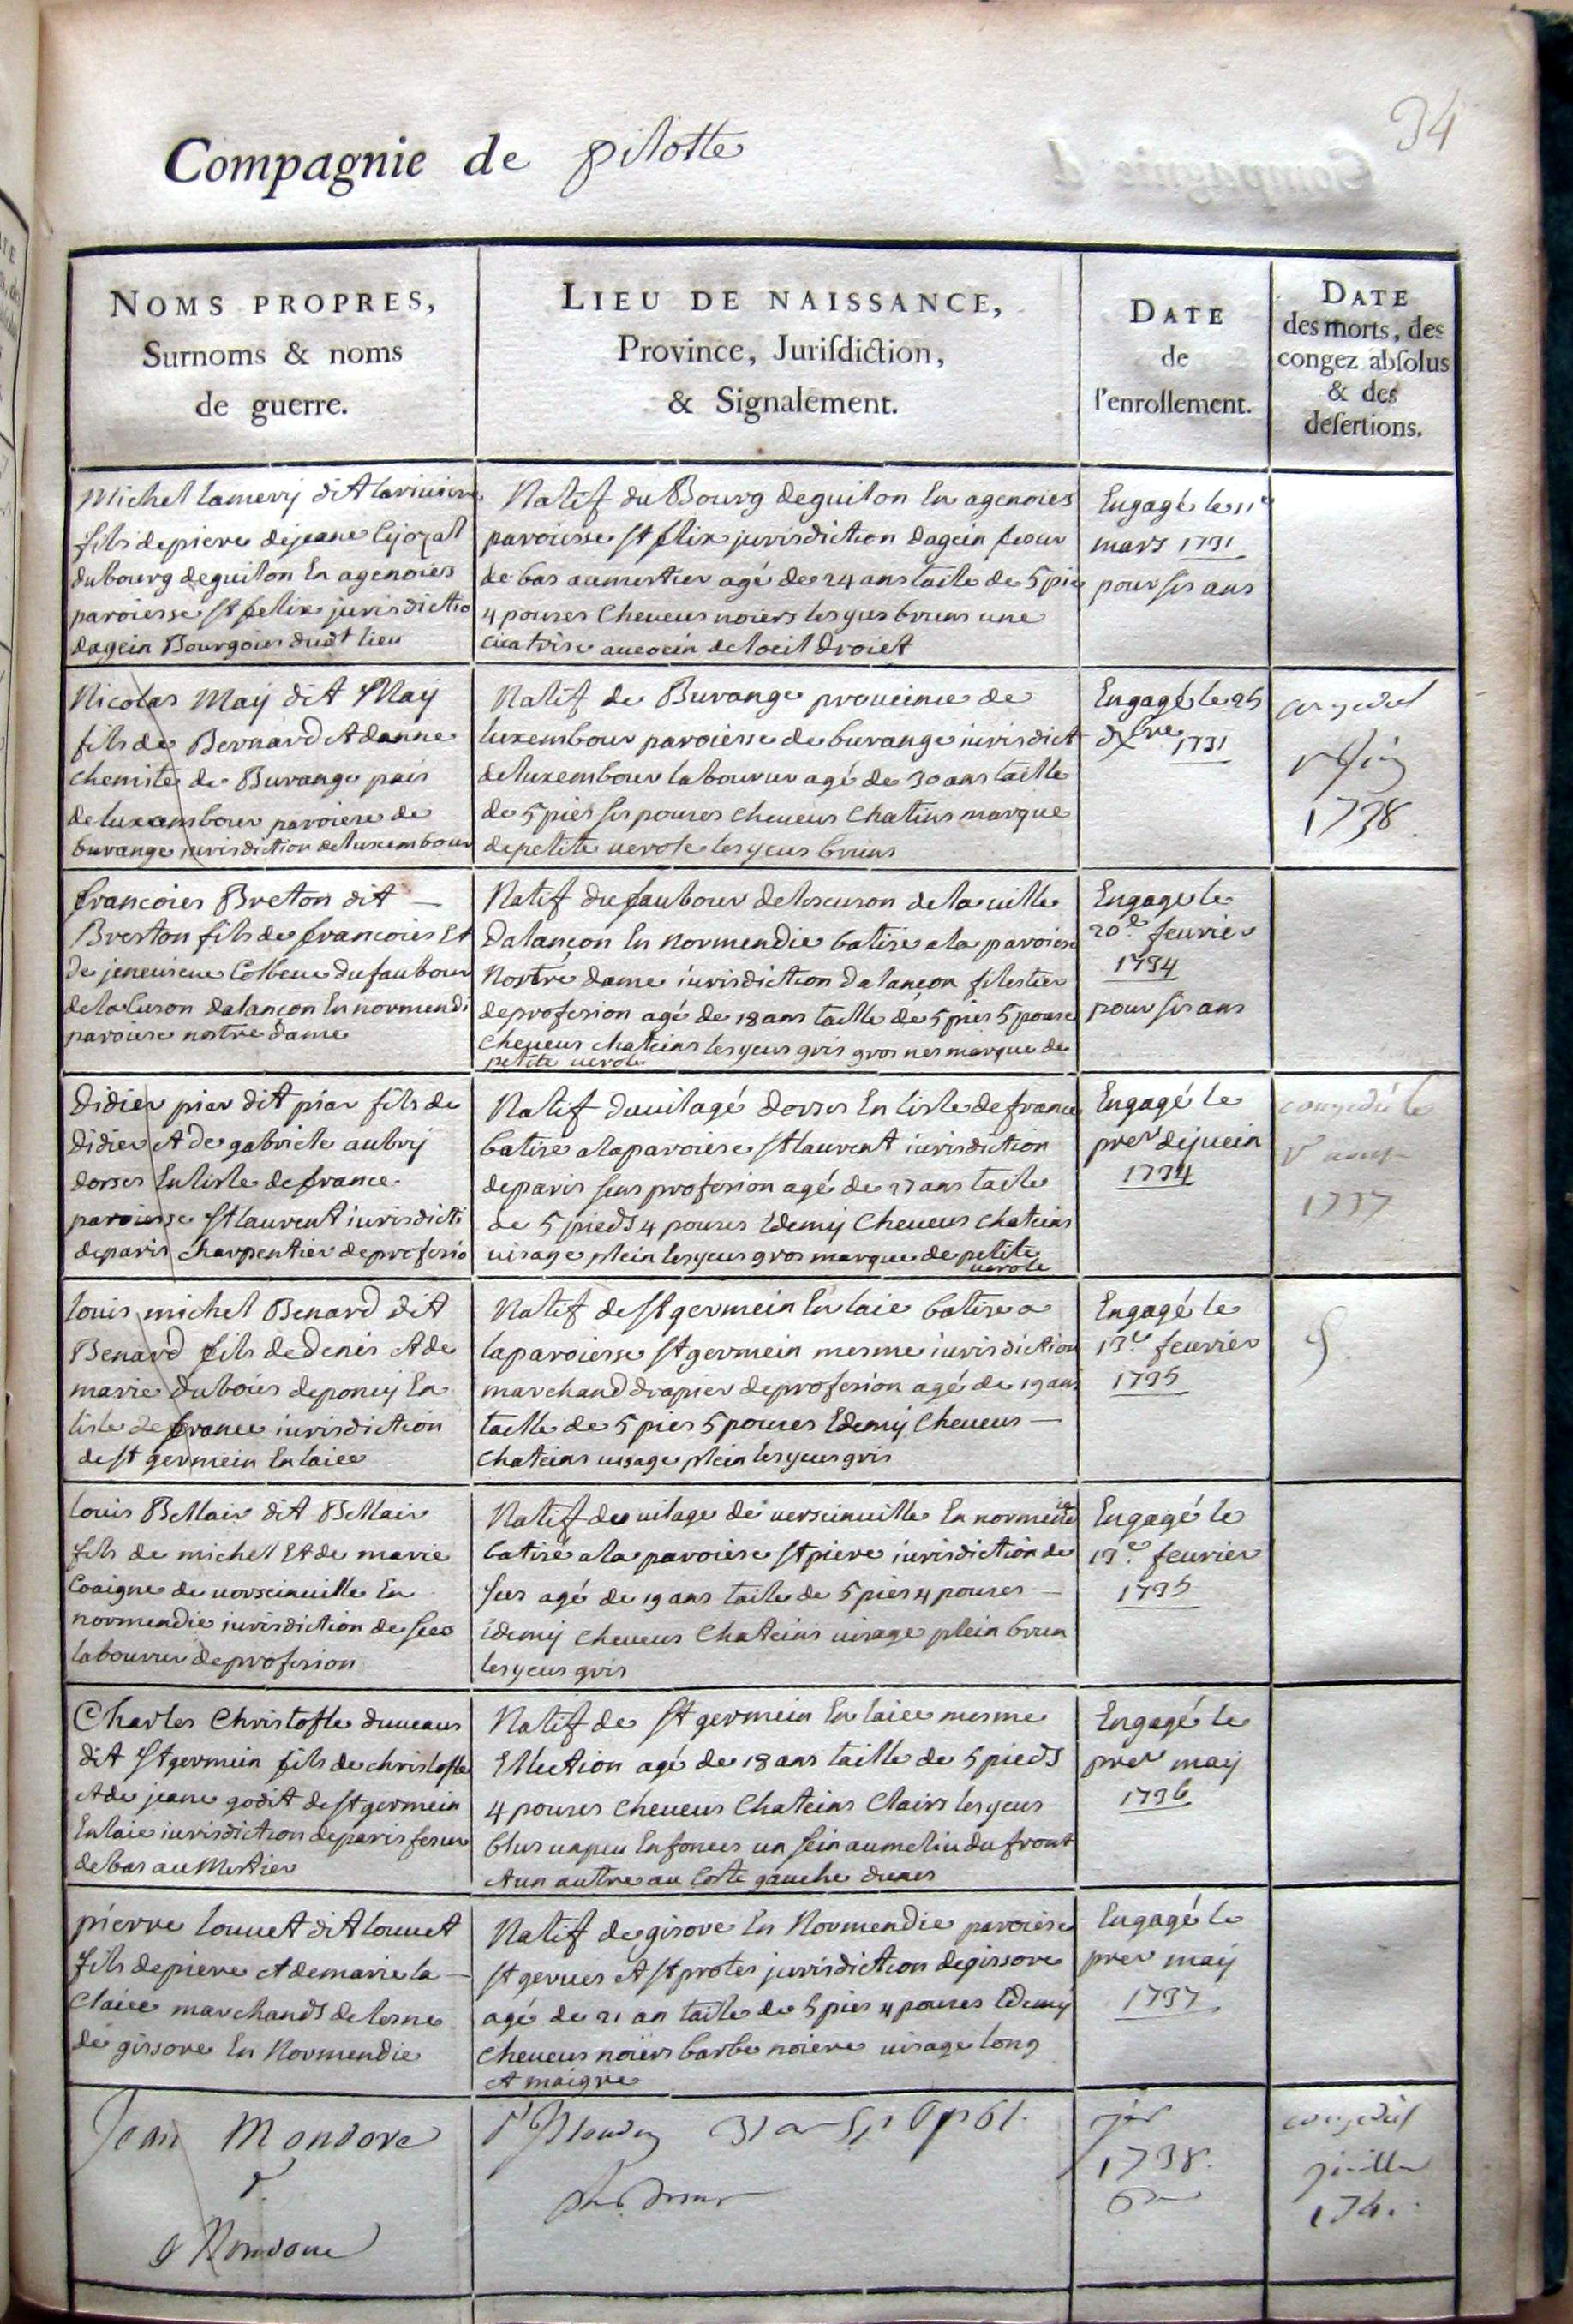 34
Compagnie de pilotte
NOMS PROPRES,
Surnoms & noms
de guerre.
LIEU DE NAISSANCE,
Province, Jurisdiction,
& Signalement.
DATE
de
l'enrollement.
DATE
des morts, des
congez absolus
& des
desertions.
Michel lamery dit
fils de piere de jeane
du bourg de guilon En agenoies
paroiesse st felix jurisdictio
dagein Bourgoies dudt lieu
Natif du Bourg de guilon En agenoies
paroiesse st flix jurisdiction dagein
de bas au mestier agé de 24 ans taile de 5 pie
4 pouses Cheueus noiers les yus bruns une
cicatrise au coein de loeil droiet
Engagé le 11e
mars 1731
pour sis ans
Nicolas May dit May
fils de Bernard et danne
chemite de Burange pais
de luxembour paroiese de
burange iurisdiction de luxembour
Natif de Burange proueince de
luxembour paroiesse de burange iurisdict
de luxembour laboureur agé de 30 ans taille
de 5 pies sis pouses cheueus Chatins marque
de petite uerole les yeus bruns
Engagé le 25
dxbre 1731
1738.
francoies Breton dit —
Breston fils de francoies Et
de jeneuieue Colbeue du faubour
de dalancon En normendi
paroiese nostre dame
Natif du faubour de la uille
dalançon En normendie batise a la paroiese
Nostre dame iurisdiction dalançon filestier
de profesion agé de 18 ans taille de 5 pies 5 pouse
cheueus chateins les yeus gris gros nes marque de
petite uerole
Engagé le
20e feurier
1734
pour sis ans
didier piar dit piar fils de
didier et de gabriele aubry
dorses En lisle de france
paroiesse st laurent iurisdicti
de paris charpentier de profesio
Natif du uilagé dorses En lisle de france
batise a la paroiese st laurent iurisdiction
de paris sens profesion agé de 27 ans taile
de 5 pieds 4 pouses Edemy Cheueus chateins
uisage plein les yeus gros marque de petite
uerole
Engagé le
prer de juein
1734
congedié le
1737
louis michel Benard dit
Benard fils de denis et de
marie duboies de poncy En
lisle de france iurisdiction
de st germein En laiee
Natif de st germein En laie batise a
la paroiesse st germein mesme iurisdiction
marchand drapier de profesion agé de 19 ans
taille de 5 pies 5 pouses Edemy Cheueus —
Chateins uisage plein les yeus gris
Engagé le
13e feurier
1735
louis Bellair dit Bellair
fils de michel Et de marie
Coaigne de uorseinuille En
normendie iurisdiction de sees
laboureur de profesion
Natif du uilage de uerseinuille En normendie
batisé a la paroiese st piere iurisdiction de
sees agé de 19 ans taile de 5 pies 4 pouses —
Edemy cheueus Chateins uisage plein brun
les yeus gris
Engagé le
13e feurier
1735
Charles Christofle duueaus
dit st germein fils de christofle
et de jeane godit de st germein
En laie iurisdiction de paris feseur
de bas au Mestier
Natif de st germein En laiee mesme
Ellection agé de 18 ans taille de 5 pieds
4 pouses cheueus Chateins Clairs les yeus
blus un peu Enfonces un sein au melieu du front
et un autre au Costé gauche du nes
Engagé le
prer may
1736
pierre louuet dit louuet
fils de piere et de marie la —
Claiee marchands de lesne
de gisore En Normendie
Natif de gisore En Normendie paroiese
st gerues et st protes jurisdiction de gissore
agé de 21 an taile de 5 pies 4 pouses Edemy
cheueus noiers barbe noiere uisage long
et maigre
Engagé le
prer may
1737
Jean Mondore
d
Mondore
31 a
1738.
6
congedié
juillet
174.